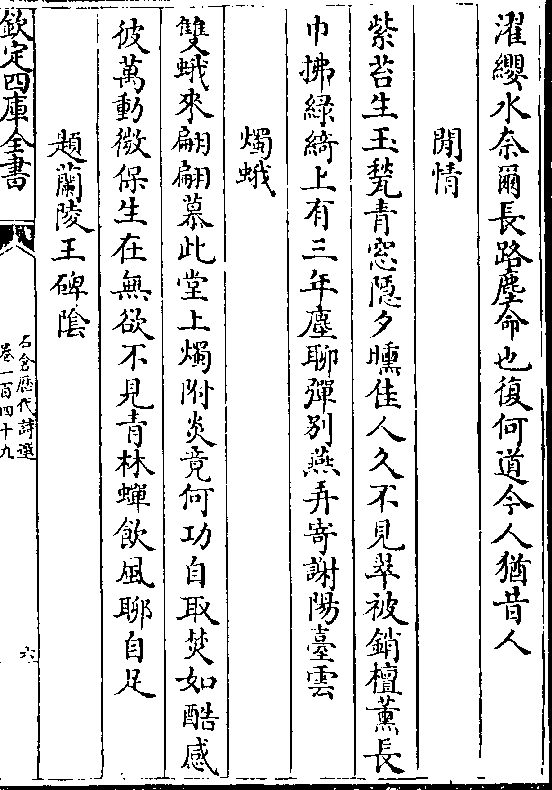 濯纓水奈爾長路塵命也復何道今人猶昔人
閒情
紫苔生玉甃青窓隠夕曛佳人久不見翠被銷檀薰長
巾拂緑綺上有三年塵聊彈别燕弄寄謝陽臺雲
燭蛾
雙蛾來翩翩慕此堂上燭附炎竟何功自取焚如酷感
彼萬動微保生在無欲不見青林蟬飲風聊自足
題蘭陵王碑陰
欽定四庫全書
石倉歷代詩選
卷一百四十九
六